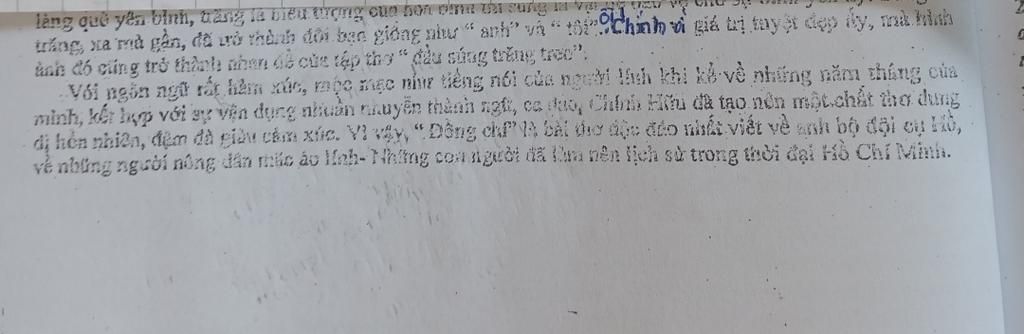 làng quê yên bình, trăng là biểu tượng của hòa bình thì súng là
trăng, xa mà gần, đã trở thành đôi bạn giống như “ anh” và “ tôi”. Chính vì giá trị tuyệt đẹp ấy, mà hình
ảnh đó cũng trở thành nhan đề của tập thơ “ đầu súng trăng treo”.
Với ngôn ngữ rất hàm xúc, mộc mạc như tiếng nói của người lính khi kể về những năm tháng của
mình, kết hợp với sự vận dụng nhuần nhuyễn thành ngữ, ca dao, Chính Hữu đã tạo nên một chất thơ dung
dị hồn nhiên, đậm đà giàu cảm xúc. Vì vậy, “ Đồng chí” là bài thơ độc đáo nhất viết về anh bộ đội cụ Hồ,
về những người nông dân mặc áo lính- Những con người đã làm nên lịch sử trong thời đại Hồ Chí Minh.